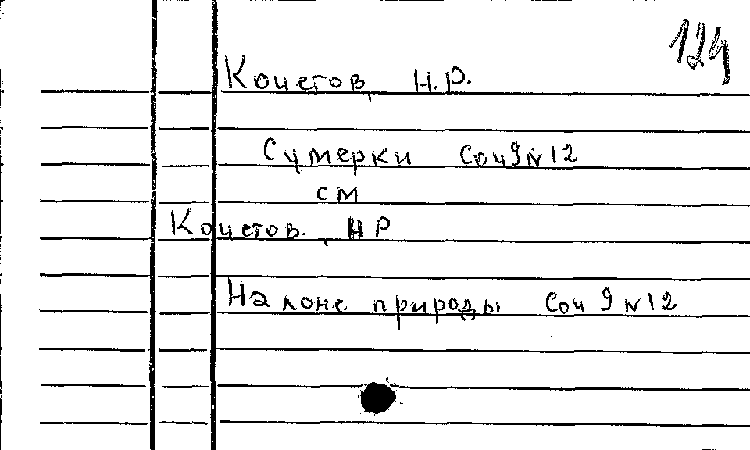 124
Кочетов, Н.Р.
Сумерки Соч 9 N 12
см
Кочетов. НР
На лоне природы Соч 9 N 12